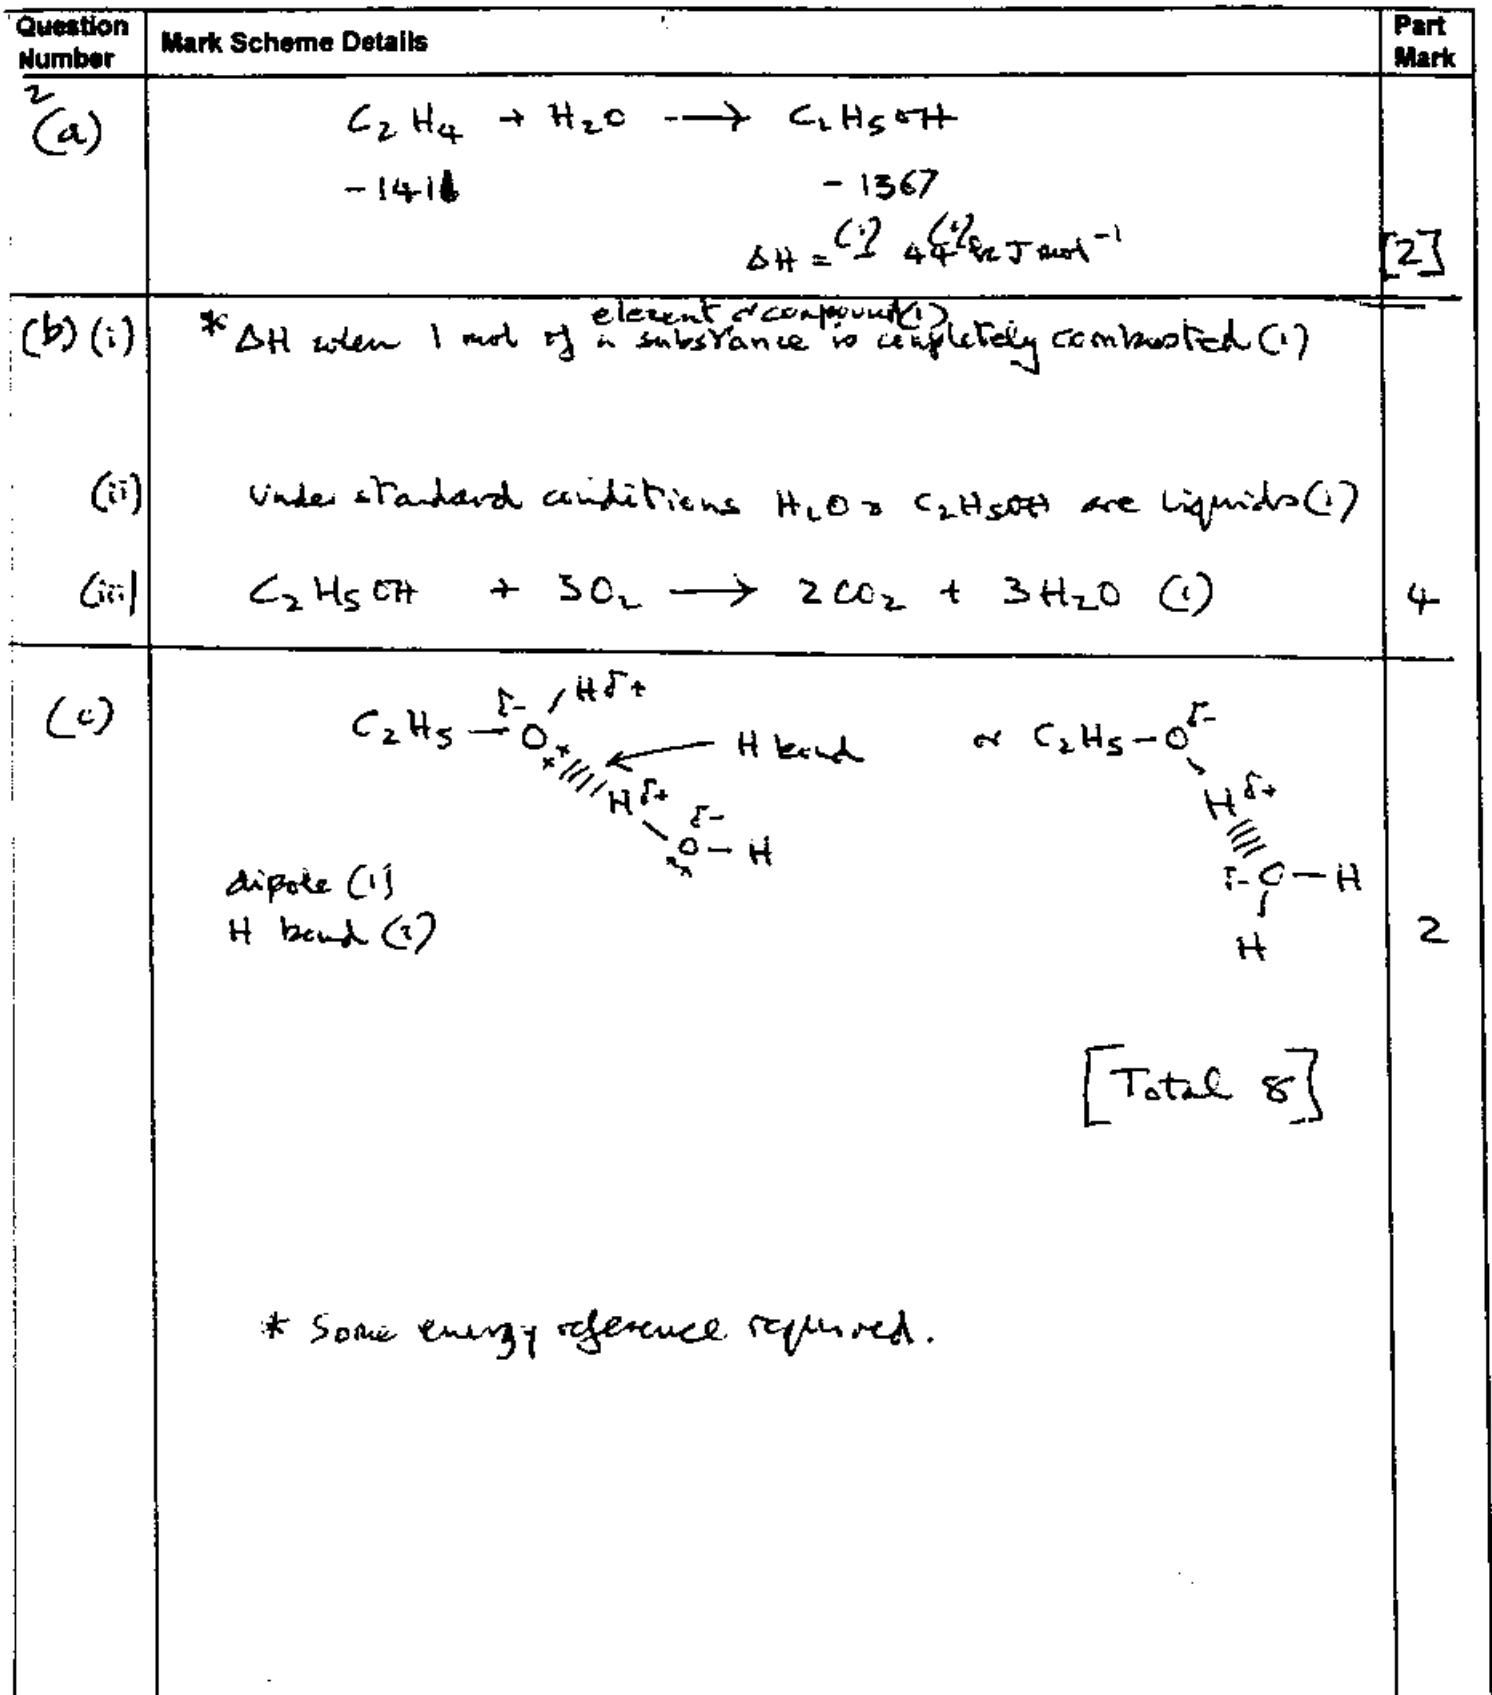 Question Number | Mark Scheme Details | Part Mark
2
(a) C₂H₄ + H₂O ⟶ C₂H₅OH
-1411 -1367
(1) (1)
ΔH = - 44 kJ mol⁻¹ [2]
element or compound (1)
(b) (i) * ΔH when 1 mol of a substance is completely combusted (1)
(ii) Under standard conditions H₂O & C₂H₅OH are liquids (1)
(iii) C₂H₅OH + 3O₂ ⟶ 2CO₂ + 3H₂O (1) 4
(c) C₂H₅ — O δ- H δ+ H bond or C₂H₅ — O δ-
H δ+ H δ+
O δ- — H δ- O — H
dipole (1)
H bond (1) H 2
[Total 8]
* Some energy reference required.